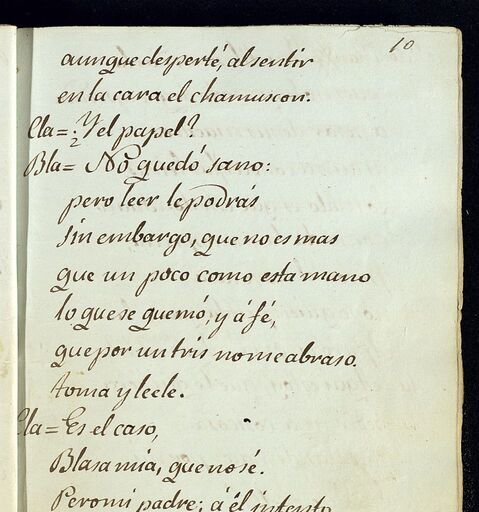 10
aunque desperté, al sentir
en la cara el chamuscon.
Cla= ¿Y el papel?
Bla= No quedó sano:
pero leer le podrás
sin embargo, que no es mas
que un poco como esta mano
lo que se quemó, y á fé,
que por un tris no me abraso.
toma y leele.
Cla= Es el caso,
Blasa mia, que no sé.
Pero mi padre; á él intento